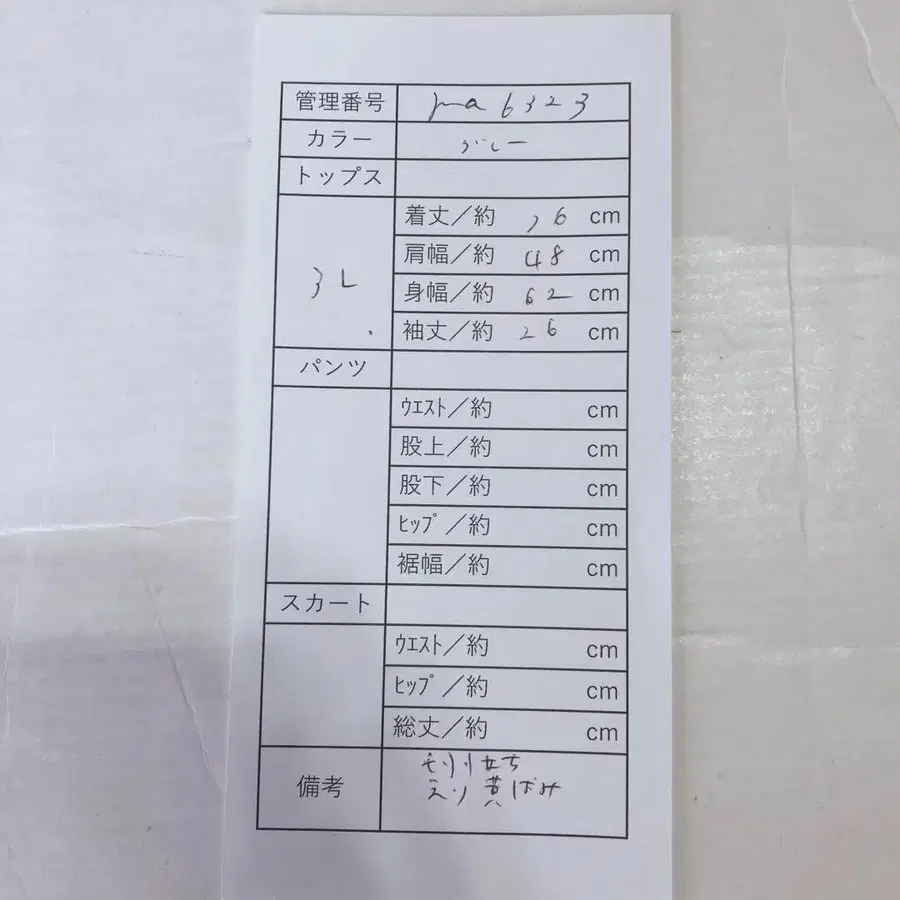 管理番号 ma 6323
カラー グレー
トップス
3L
着丈／約 76 cm
肩幅／約 48 cm
身幅／約 62 cm
袖丈／約 26 cm
パンツ
ｳｴｽﾄ／約 cm
股上／約 cm
股下／約 cm
ﾋｯﾌﾟ／約 cm
裾幅／約 cm
スカート
ｳｴｽﾄ／約 cm
ﾋｯﾌﾟ／約 cm
総丈／約 cm
備考
立ち
えり 黄ばみ